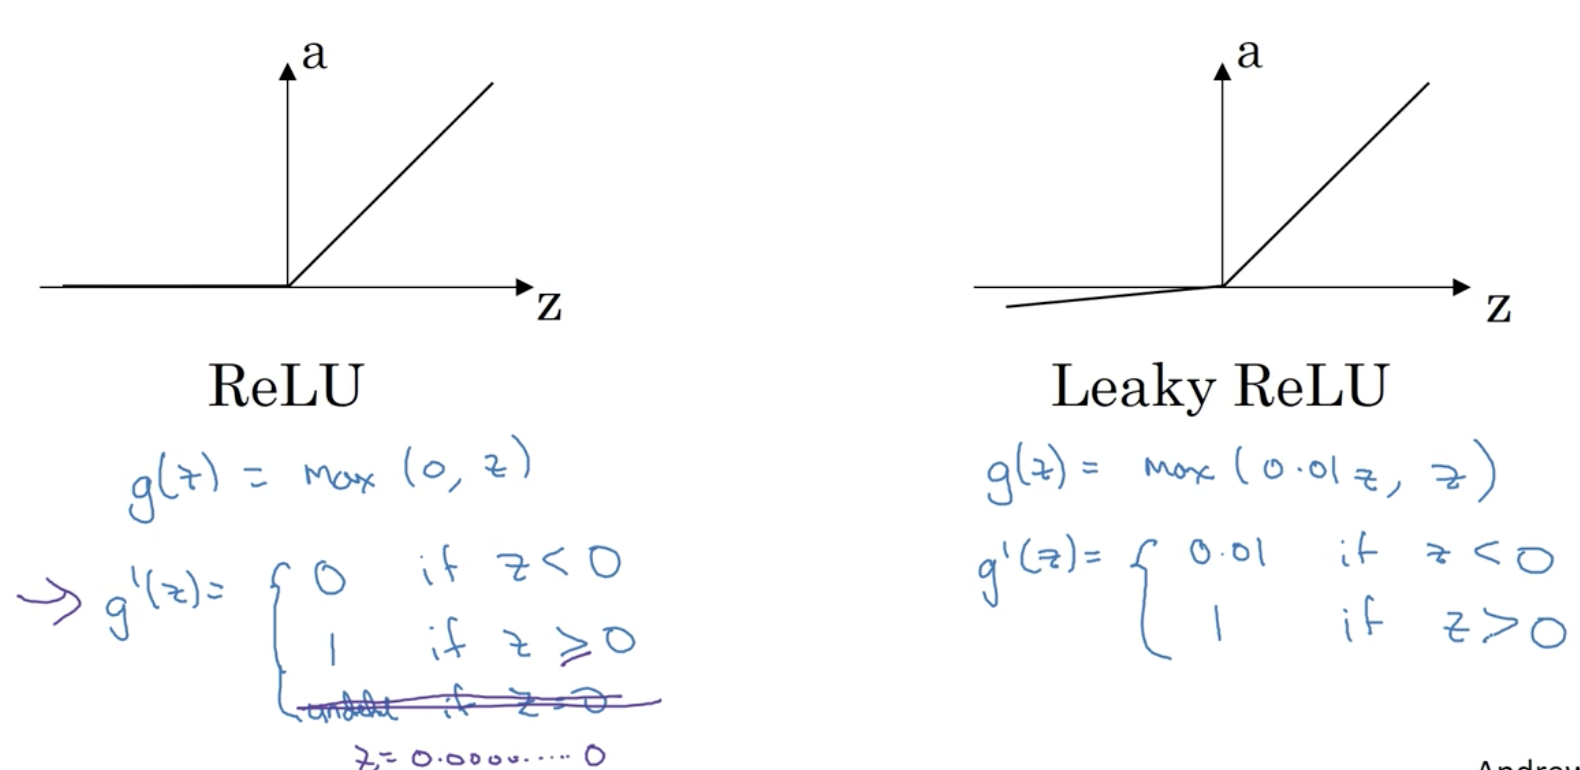 a
z
ReLU
g(z) = max (0, z)
→ g'(z) = { 0 if z < 0
1 if z ≥ 0
undef if z = 0
z = 0.0000..... 0
a
z
Leaky ReLU
g(z) = max (0.01z, z)
g'(z) = { 0.01 if z < 0
1 if z > 0
Andrew